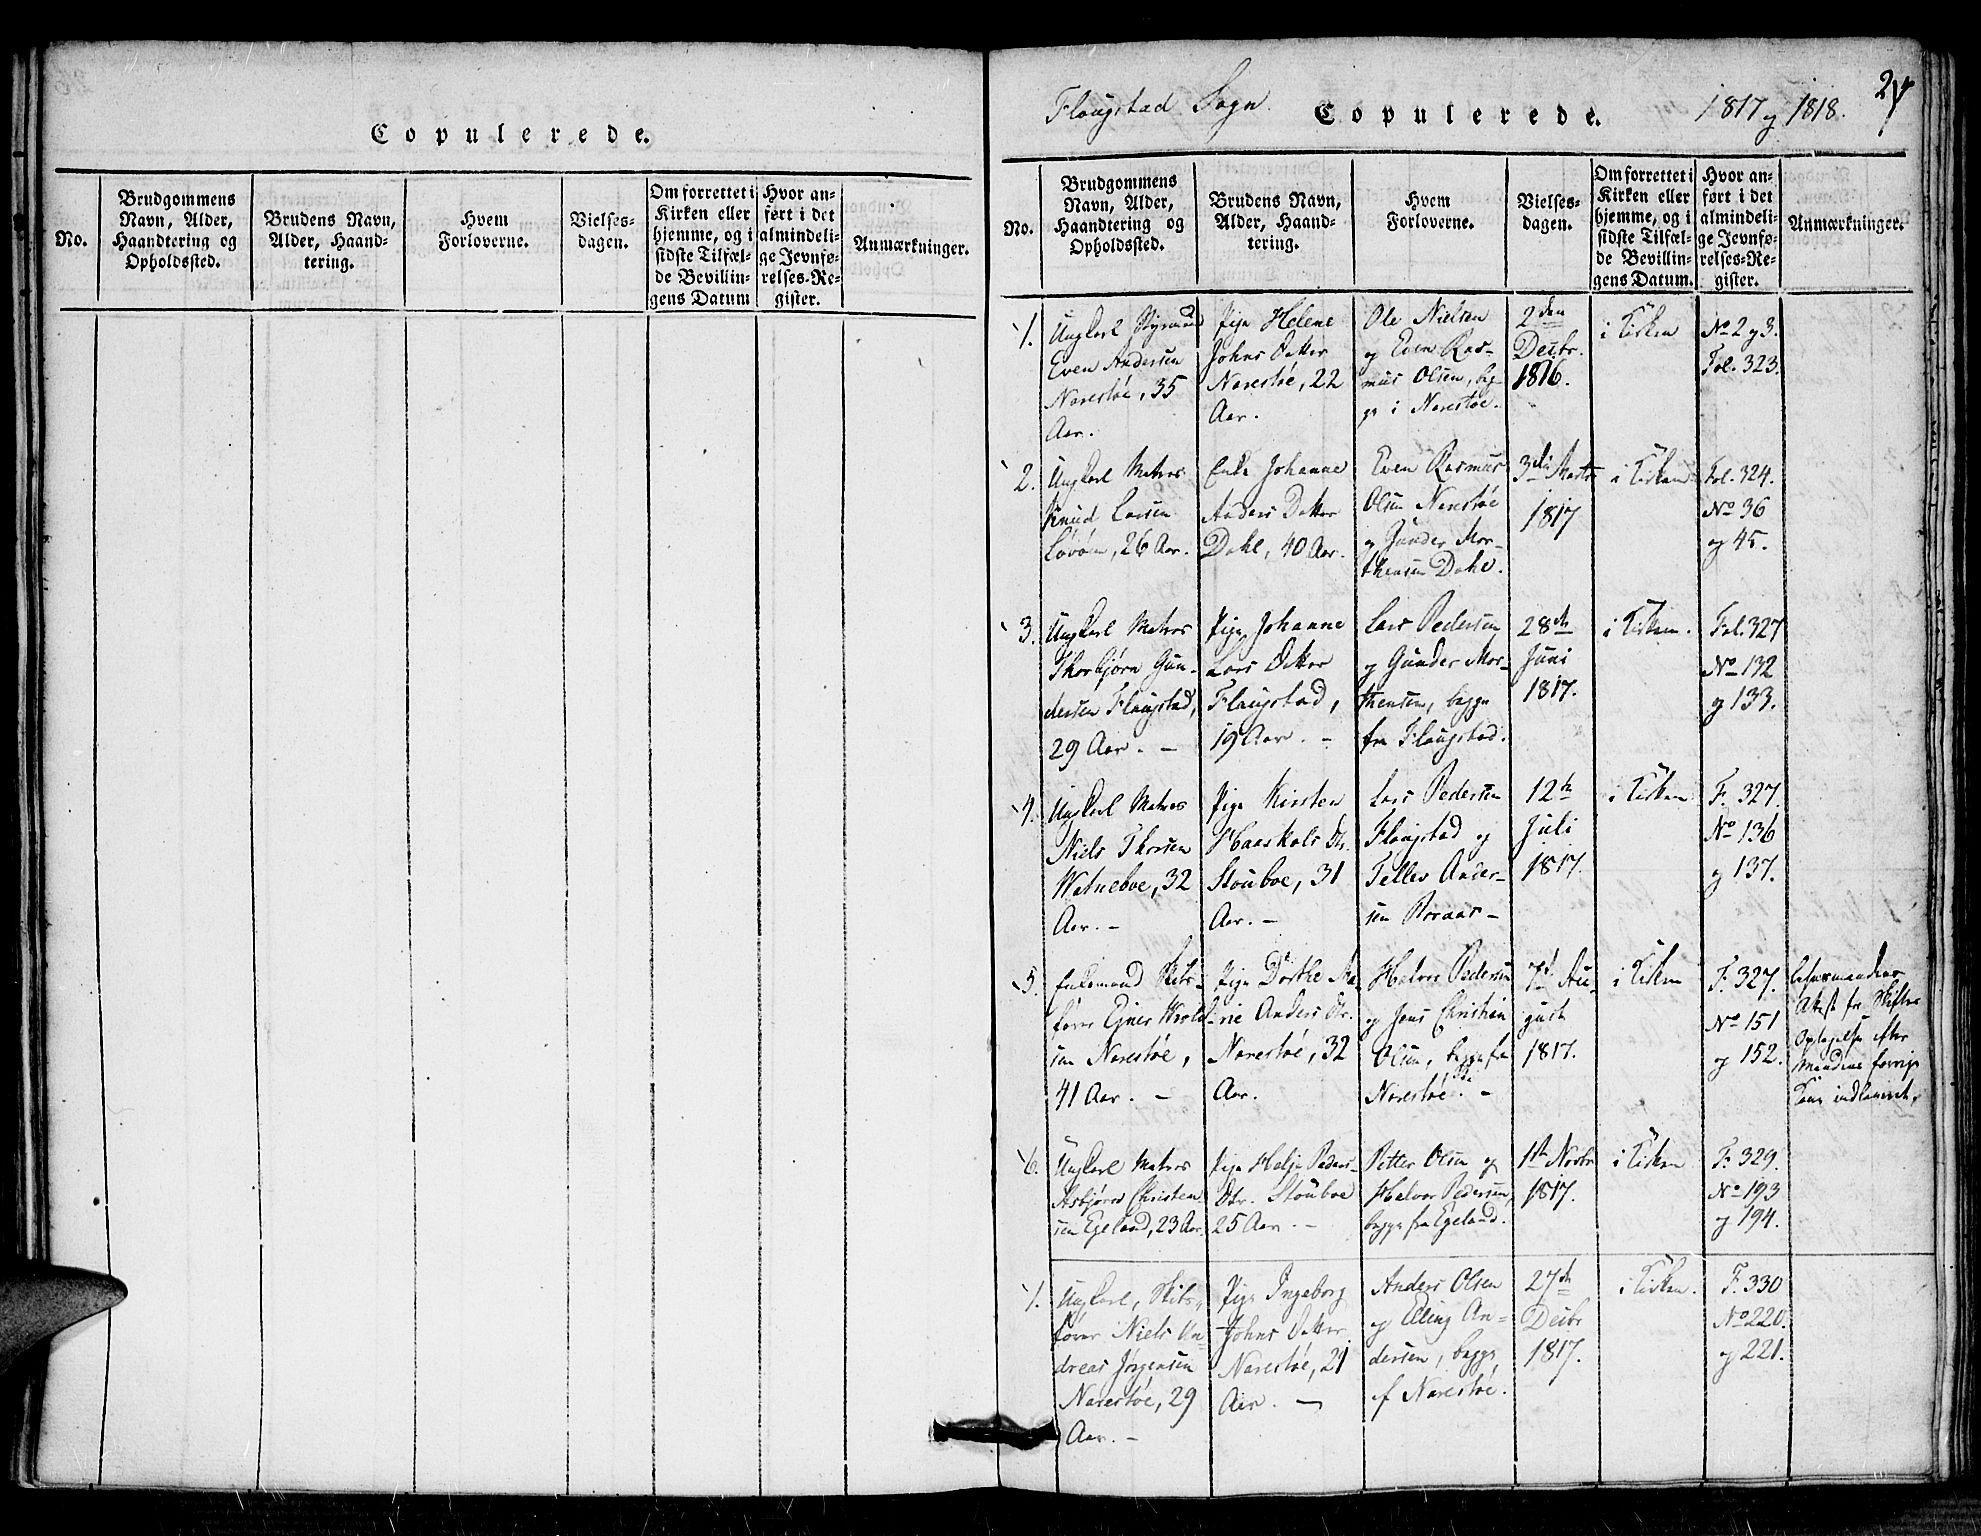 Copulerede.
No.
Brudgommens
Navn, Alder,
Haandtering og
Opholdssted.
Brudens Navn,
Alder, Haand-
tering.
Hvem
Forloverne.
Vielses-
dagen.
Om forrettet i
Kirken eller
hjemme, og i
sidste Tilfæl-
de Bevillin-
gens Datum
Hvor an-
ført i det
almindeli-
ge Jevnfø-
relses-Re-
gister.
Anmærkninger.
Flaugstad Sogn.
Copulerede.
1817 og 1818.
27
No.
Brudgommens
Navn, Alder,
Haandtering og
Opholdssted.
Brudens Navn,
Alder, Haand-
tering.
Hvem
Forloverne.
Vielses-
dagen.
Om forrettet i
Kirken eller
hjemme, og i
sidste Tilfæl-
de Bevillin-
gens Datum.
Hvor an-
ført i det
almindeli-
ge Jevnfø-
relses-Re-
gister.
Anmærkninger.
1.
Ungkarl Styrmand
Even Andersen
Narestøe, 35
Aar.
Pige Helene
Johns Datter
Narestøe, 22
Aar.
Ole Nielsen
og Even Ras-
mus Olsen, beg-
ge i Narestøe.
2den
Decbr.
1816.
i Kirken
No 2 og 3.
Fol. 323.
2.
Ungkarl Matros
Knud Larsen
26 Aar.
Enke Johanne
Anders Datter
Dahl, 40 Aar.
Even Rasmus
Olsen Narestøe
og Gunder Mor-
thensen Dahl.
3die Marts
1817
i Kirken
Fol. 324.
No 36
og 45.
3.
Ungkarl Matros
Thorbjørn Gun-
dersen Flaugstad,
29 Aar. -
Pige Johanne
Lars Datter
Flaugstad,
19 Aar. -
Lars Pedersen
og Gunder Mor-
thensen, begge
fra Flaugstad.
28de
Juni
1817.
i Kirken.
Fol. 327
No 132
og 133.
4.
Ungkarl Matros
Niels Thorsen
Watneboe, 32
Aar. -
Pige Kirsten
Haaskols Dtr.
Stouboe, 31
Aar. -
Lars Pedersen
Flaugstad og
Tellev Ander-
sen Roraas -
12te
Juli
1817.
i Kirken
F. 327.
No 136
og 137.
5.
Enkemand Skibs-
fører Ejner Wrold-
sen Narestøe,
41 Aar. -
Pige Dorthe Ma-
rie Anders Dtr.
Narestøe, 32
Aar.
Halvor Pedersen
og Jens Christian
Olsen, begge fra
Narestøe. -
7d. Au-
gust
1817.
i Kirken
F. 327.
No 151
og 152.
Attest fra Skifte
efter
Mandens forrige
Kone indleveret.
6.
Ungkarl Matros
Asbjørn Christen
sen Egeland, 23 Aar.
Pige Helje Peders-
Dtr. Stouboe
25 Aar. -
Petter Olsen og
Halvor Pedersen,
begge fra Egeland.
1ste Novbr
1817.
i Kirken
F. 329.
No 193
og 194.
1.
Ungkarl, Skibs-
fører Niels An-
dreas Jørgensen
Narestøe, 29
Aar. -
Pige Ingeborg
Johns Datter
Narestøe, 21
Aar. -
Anders Olsen
og Elling An-
dersen, begge
af Narestøe.
27de
Decbr
1817.
i Kirken.
F. 330
No 220.
og 221.